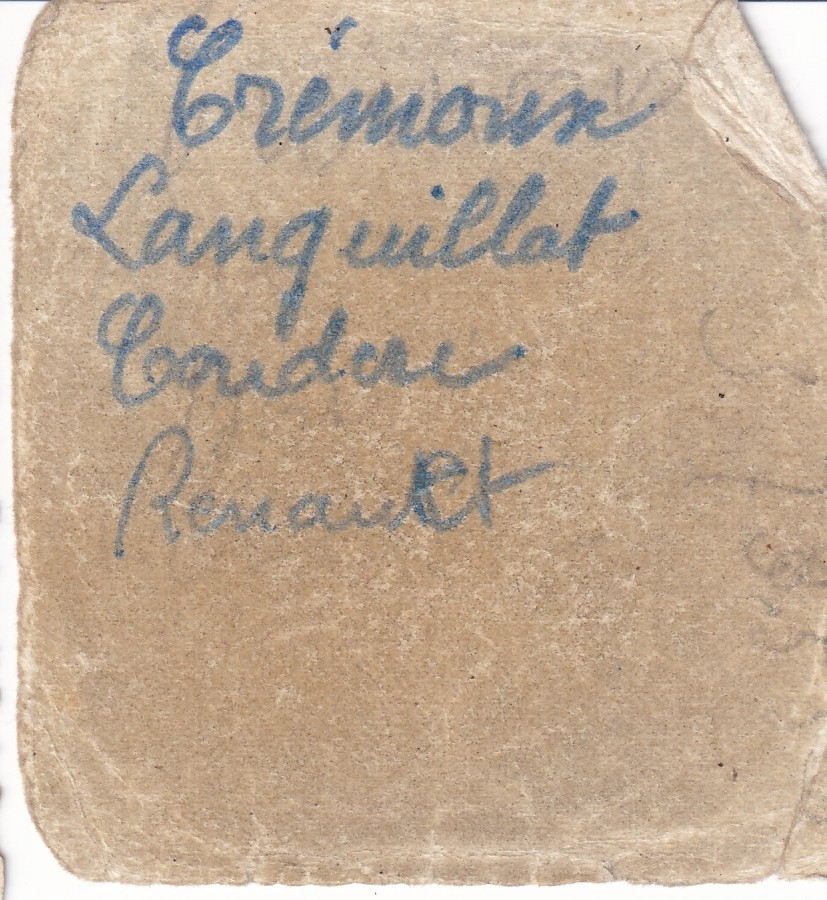 Trémoux
Languillat
Couderc
Renault